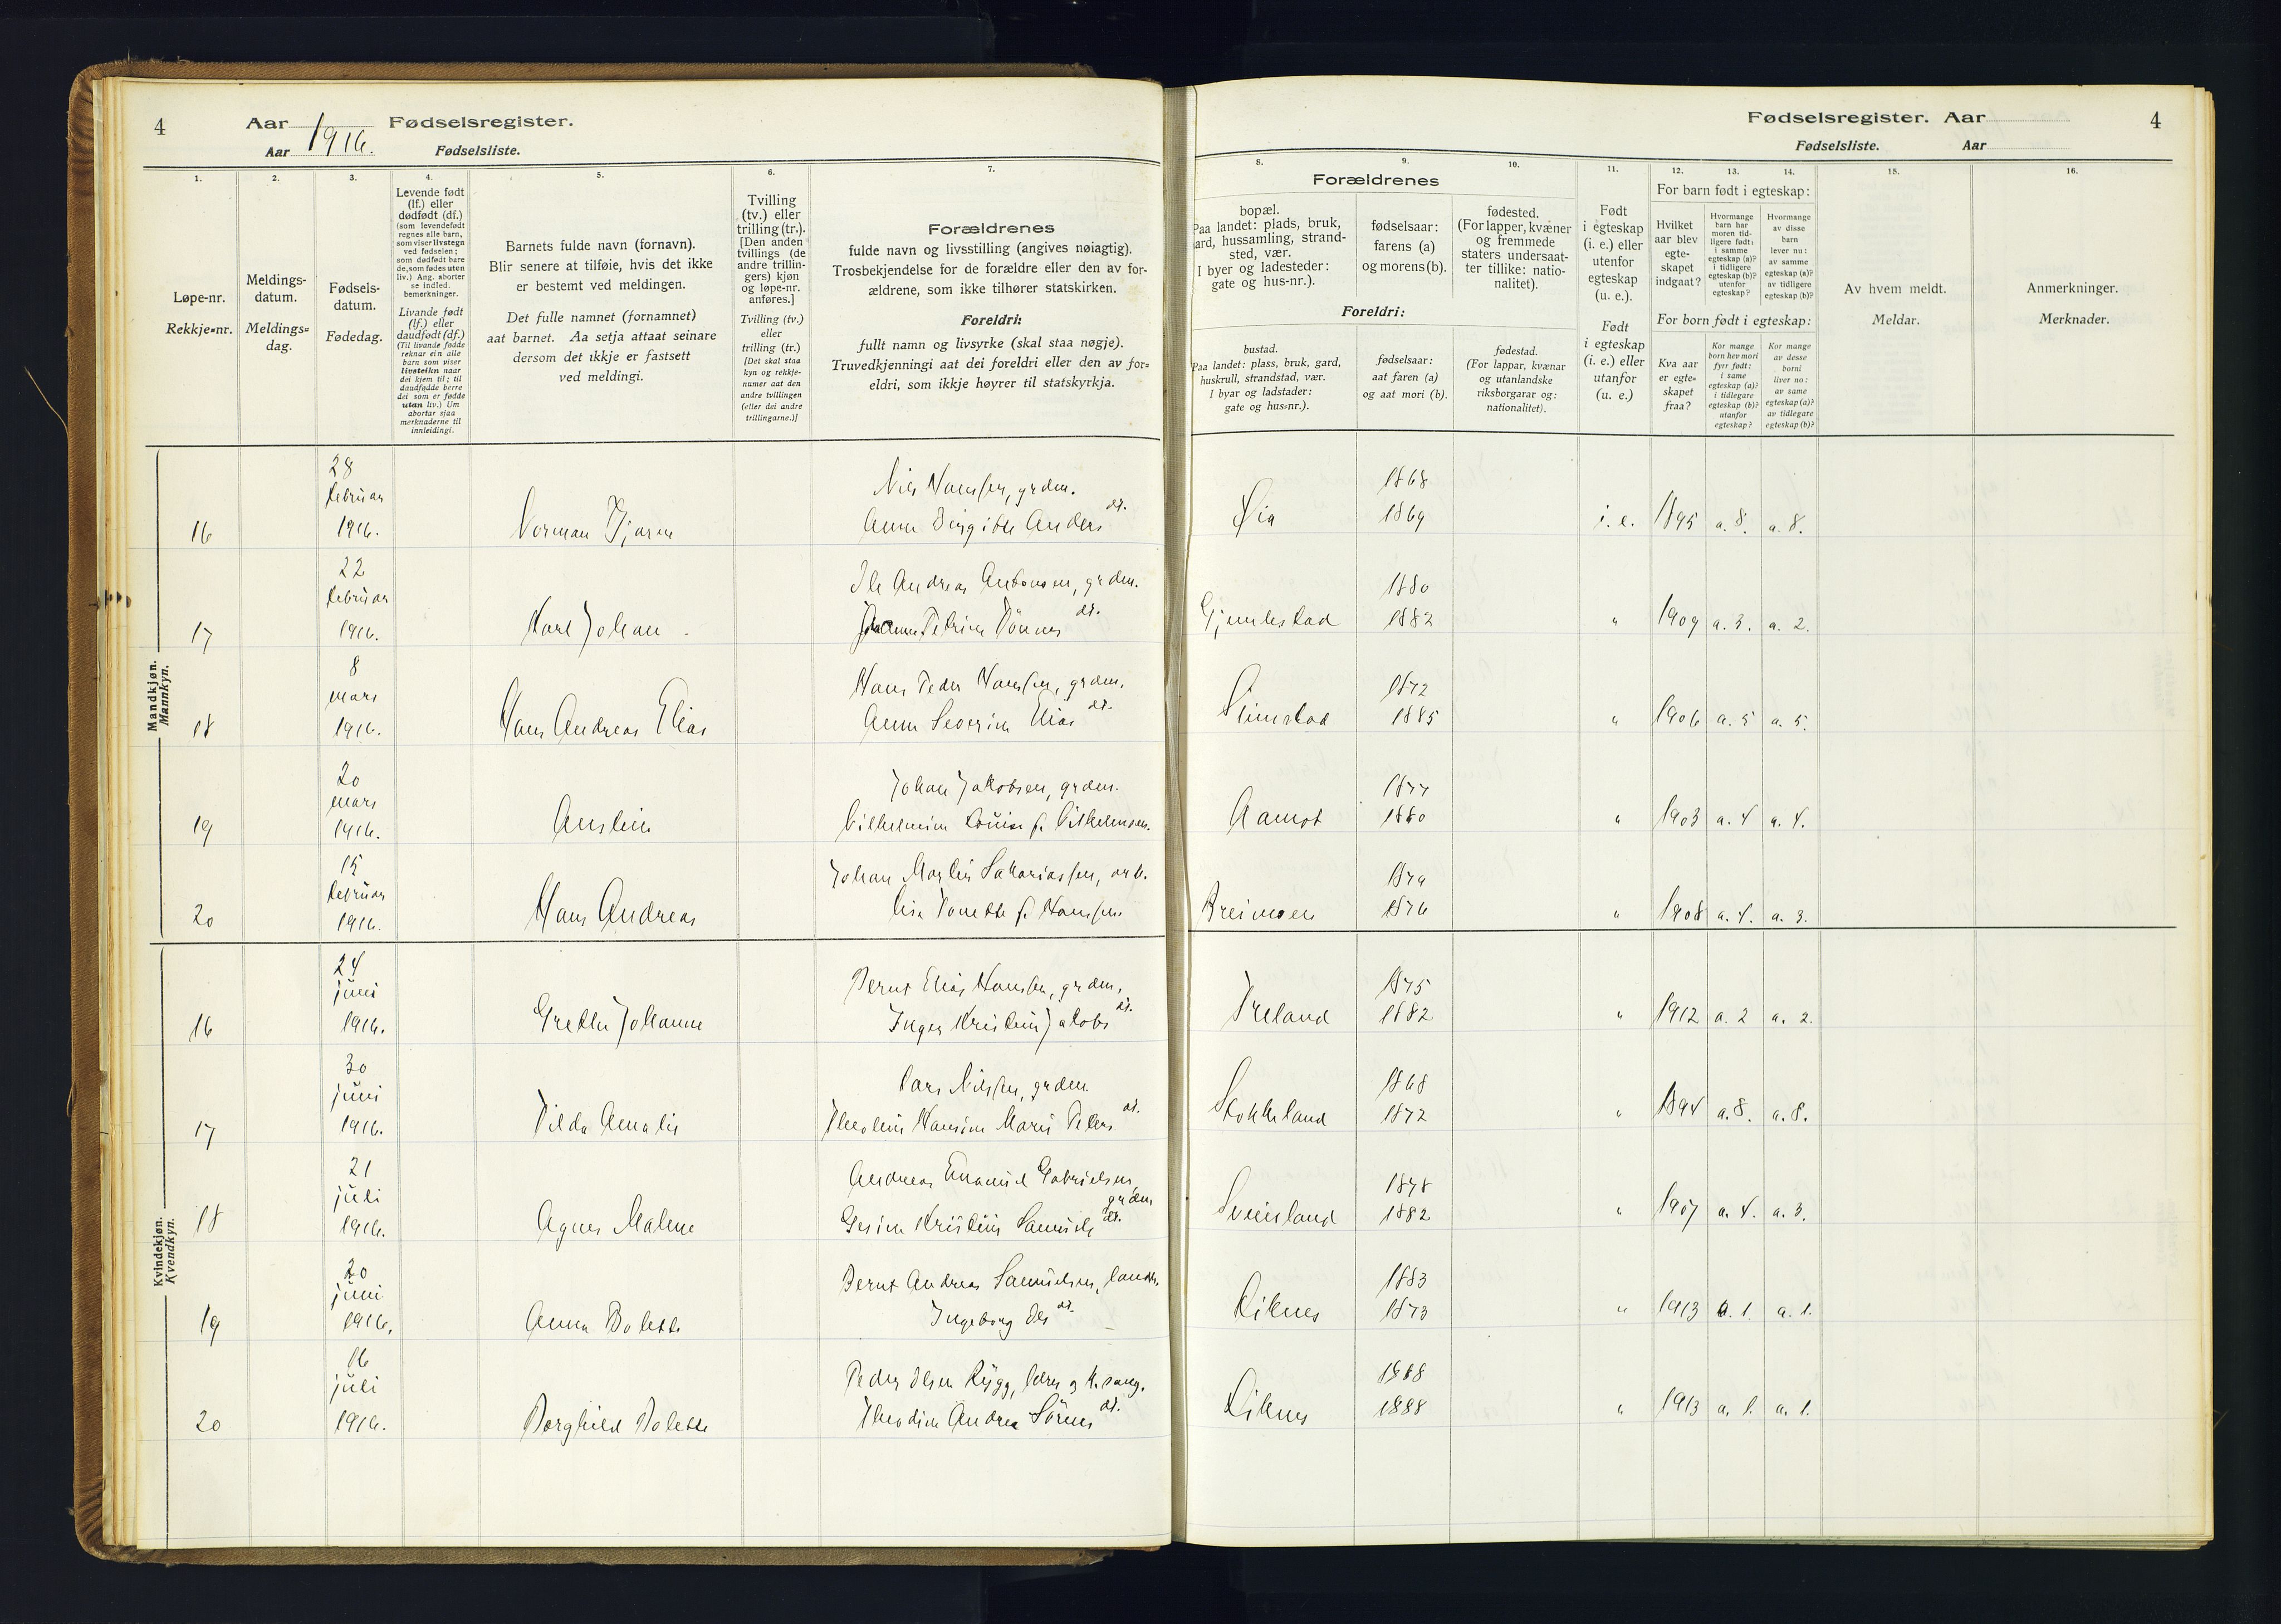 4
Aar 1916. Fødselsregister.
Aar Fødselsliste.
Fødselsregister. Aar 4
Fødselsliste. Aar
1. 2. 3. 4. 5. 6. 7.
8. 9. 10. 11. 12. 13. 14. 15. 16.
Løpe-nr.
Rekkje=nr.
Meldings-
datum.
Meldings=
dag.
Fødsels-
datum.
Fødedag.
Levende født
(lf.) eller
dødfødt (df.)
(som levendefødt
regnes alle barn,
som viser livstegn
ved fødselen;
som dødfødt bare
de, som fødes uten
liv.) Ang. aborter
se indled.
bemerkninger.
Livande født
(lf.) eller
daudfødt (df.)
(Til livande fødde
reknar ein alle
barn som viser
livsteikn naar
dei kjem til; til
daudfødde berre
dei som er fødde
utan liv.) Um
abortar sjaa
merknaderne til
innleidingi.
Barnets fulde navn (fornavn).
Blir senere at tilføie, hvis det ikke
er bestemt ved meldingen.
Det fulle namnet (fornamnet)
aat barnet. Aa setja attaat seinare
dersom det ikkje er fastsett
ved meldingi.
Tvilling
(tv.) eller
trilling (tr.).
[Den anden
tvillings (de
andre trillin-
gers) kjøn
og løpe-nr.
anføres.]
Tvilling (tv.)
eller
trilling (tr.)
[Det skal staa
kyn og rekkje-
numer aat den
andre tvillingen
(eller dei andre
trillingarne.)]
Forældrenes
fulde navn og livsstilling (angives nøiagtig).
Trosbekjendelse for de forældre eller den av for-
ældrene, som ikke tilhører statskirken.
Foreldri:
fullt namn og livsyrke (skal staa nøgje).
Truvedkjenningi aat dei foreldri eller den av for=
eldri, som ikkje høyrer til statskyrkja.
Forældrenes
bopæl.
Paa landet: plads, bruk,
ard, hussamling, strand-
sted, vær.
I byer og ladesteder:
gate og hus-nr.).
fødselsaar:
farens (a)
og morens (b).
fødested.
(For lapper, kvæner
og fremmede
staters undersaat-
ter tillike: natio-
nalitet).
Foreldri:
bustad.
Paa landet: plass, bruk, gard,
huskrull, strandstad, vær.
I byar og ladstader:
gate og hus=nr.).
fødselsaar:
aat faren (a)
og aat mori (b).
fødestad.
(For lappar, kvænar
og utanlandske
riksborgarar og:
nationalitet).
Født
i egteskap
(i. e.) eller
utenfor
egteskap
(u. e.).
Født
i egteskap
(i. e.) eller
utanfor
(u. e.)
For barn født i egteskap:
Hvilket
aar blev
egte-
skapet
indgaat?
Hvormange
barn har
moren tid-
ligere født:
i samme
egteskap (a)?
i tidligere
egteskap (b)?
utenfor
egteskap?
Hvormange
av disse
barn
lever nu:
av samme
egteskap (a)?
av tidligere
egteskap (b)?
For born født i egteskap:
Kva aar
er egte=
skapet
fraa?
Kor mange
born hev mori
fyrr født:
i same
egteskap (a)?
i tidlegare
egteskap (b)?
utanfor
egteskap?
Kor mange
av desse
borni
liver no:
av same
egteskap (a)?
av tidlegare
egteskap (b)?
Av hvem meldt.
Meldar.
Anmerkninger.
Merknader.
Mandkjøn.
Mannkyn.
28
februar Nils Hansen, grdm. 1868
16 1916. Norman Bjarne Anna Birgitte Anders dt. Øia 1869 i. e. 1895 a. 8. a. 8.
22
februar Ole Andreas Antonsen, grdm. 1880
17 1916. Karl Johan Petrine Tønnes dt. Gjemlestad 1882 " 1909 a. 3. a. 2.
8
mars Hans Peder Hansen, grdm. 1872
18 1916. Hans Andreas Elias Anne Severine Elias dt. 1885 " 1906 a. 5 a. 5.
20
mars Johan Jakobsen, grdm. 1877
19 1916. Austein Vilhelmine Louise f. Vilhelmsen. Aamot 1880 " 1903 a. 4 a. 4.
15
februar Johan Martin Sakariassen, arb. 1879
20 1916. Hans Andreas Lisa Tonette f. Hansen Breimoen 1876 " 1908 a. 4. a. 3.
Kvindekjøn.
Kvendkyn.
24
juni Bernt Elias Hansen, grdm. 1875
16 1916. Grethe Johanne Inger Kristine Jakobs dt. Treland 1882 " 1912 a. 2 a. 2.
30
juni Lars Nilsen, grdm. 1868
17 1916. Tilda Amalie Theoline Hansine Marie Peders dt. Stokkeland 1872 " 1894 a. 8. a. 8.
21
juli Andreas Emanuel Gabrielsen, grdm 1878
18 1916. Agnes Malene Gesine Kristine Samuels dt. Sveiseland 1882 " 1907 a. 4. a. 3.
20
juni Bernt Andreas Samuelsen, 1883
19 1916. Anna Bolette Ingeborg Ols dt. Liknes 1873 " 1913 a. 1. a. 1.
16
juli Peder Olsen Rygg, lærer og k. sang. 1868
20 1916. Borghild Bolette Theodine Andrea Sørens dt. Liknes 1888 " 1913 a. 1. a. 1.